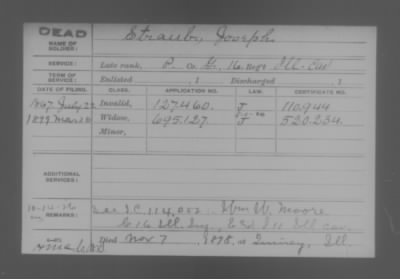 DEAD
NAME OF SOLDIER: Strauby, Joseph
SERVICE: Late rank, P. Co. G, 16 Regt Ill. Cav
TERM OF SERVICE: Enlisted , 1 Discharged , 1
DATE OF FILING. CLASS. APPLICATION NO. LAW. CERTIFICATE NO.
July 22 Invalid, 127460. J 110.944
1899 Mar Widow, 695.127. J 520.234
Minor,
ADDITIONAL SERVICES:
REMARKS: See I.C. 114,002 Wm W. Moore
G 16 Ill. Cav.
Died Nov 7, 1898, at Quincy, Ill.